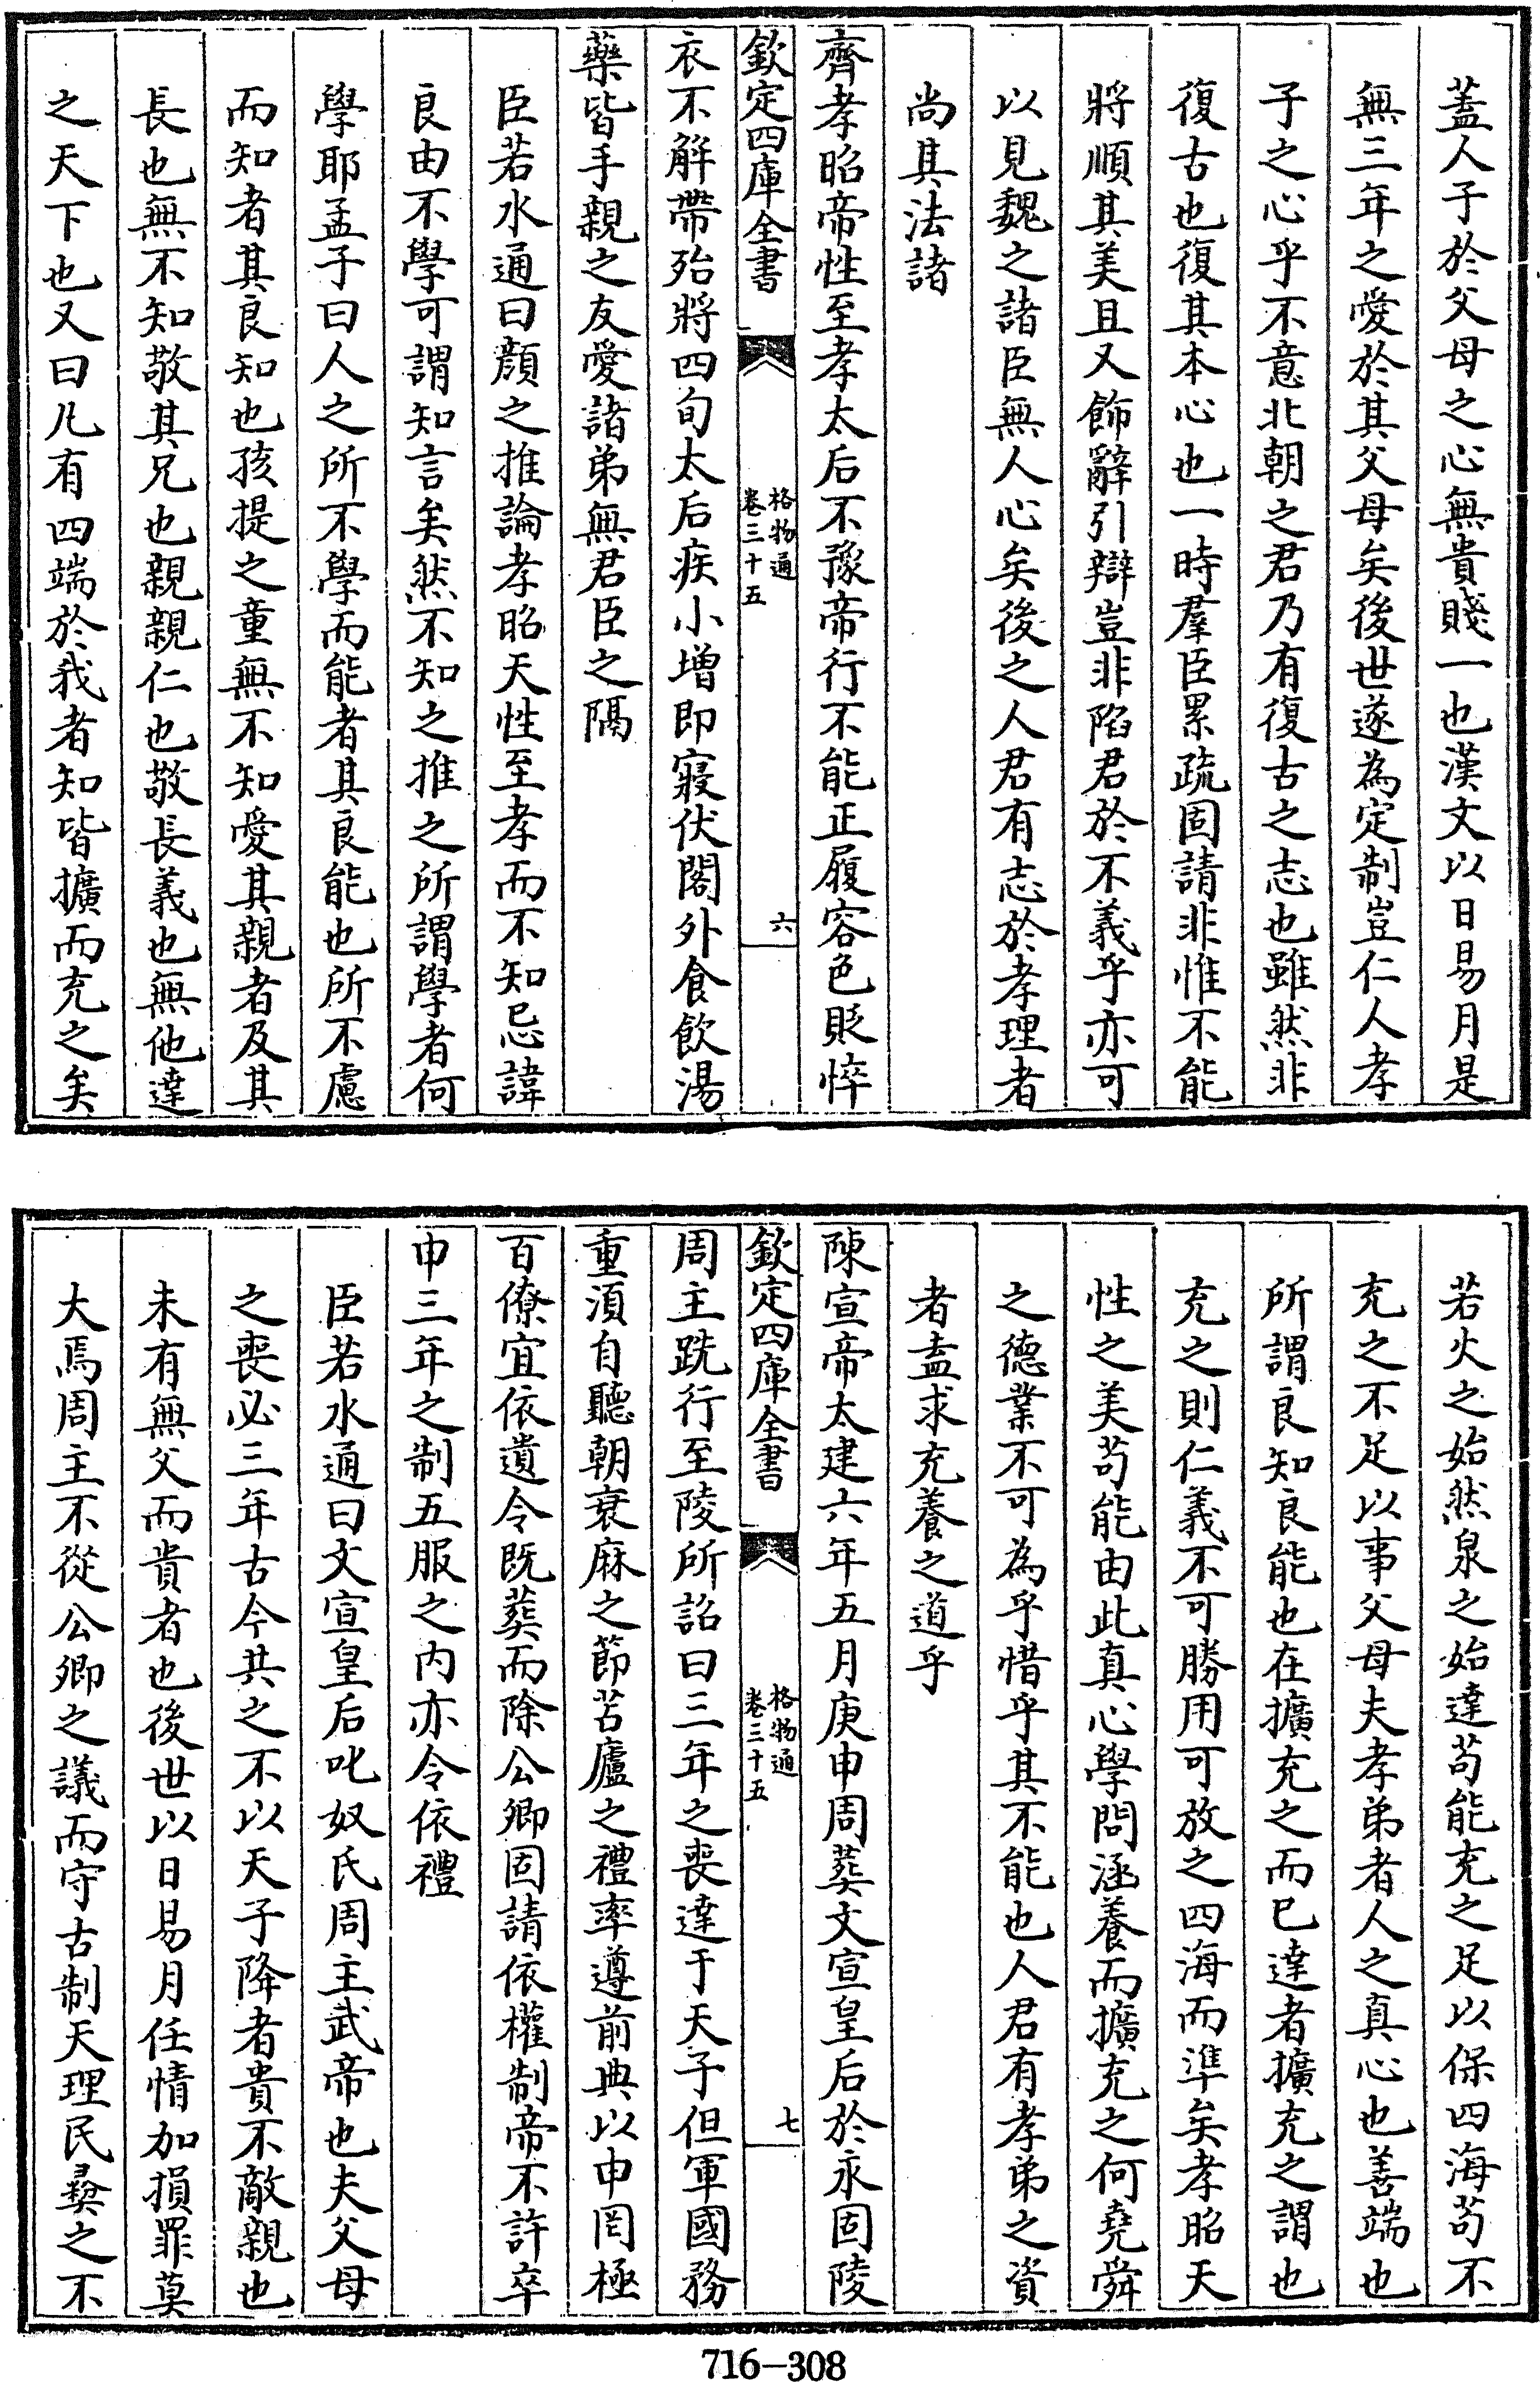 蓋人子於父母之心無貴賤一也漢文以日易月是
無三年之愛於其父母矣後世遂為定制豈仁人孝
子之心乎不意北朝之君乃有復古之志也雖然非
復古也復其本心也一時羣臣累疏固請非惟不能
將順其美且又飾辭引辯豈非陷君於不義乎亦可
以見魏之諸臣無人心矣後之人君有志於孝理者
尚其法諸
齊孝昭帝性至孝太后不豫帝行不能正履容色貶悴
欽定四庫全書
格物通
卷三十五
六
衣不解帶殆將四旬太后疾小增即寢伏閣外食飲湯
藥皆手親之友愛諸弟無君臣之隔
臣若水通曰顏之推論孝昭天性至孝而不知忌諱
良由不學可謂知言矣然不知之推之所謂學者何
學耶孟子曰人之所不學而能者其良能也所不慮
而知者其良知也孩提之童無不知愛其親者及其
長也無不知敬其兄也親親仁也敬長義也無他達
之天下也又曰凡有四端於我者知皆擴而充之矣
若火之始然泉之始達苟能充之足以保四海苟不
充之不足以事父母夫孝弟者人之真心也善端也
所謂良知良能也在擴充之而已達者擴充之謂也
充之則仁義不可勝用可放之四海而準矣孝昭天
性之美苟能由此真心學問涵養而擴充之何堯舜
之德業不可為乎惜乎其不能也人君有孝弟之資
者盍求充養之道乎
陳宣帝太建六年五月庚申周葬文宣皇后於永固陵
欽定四庫全書
格物通
卷三十五
七
周主跣行至陵所詔曰三年之喪達于天子但軍國務
重湏自聽朝衰麻之節苫廬之禮率遵前典以申罔極
百僚宜依遺令既葬而除公卿固請依權制帝不許卒
申三年之制五服之内亦令依禮
臣若水通曰文宣皇后叱奴氏周主武帝也夫父母
之喪必三年古今共之不以天子降者貴不敵親也
未有無父而貴者也後世以日易月任情加損罪莫
大焉周主不從公卿之議而守古制天理民彝之不
716-308